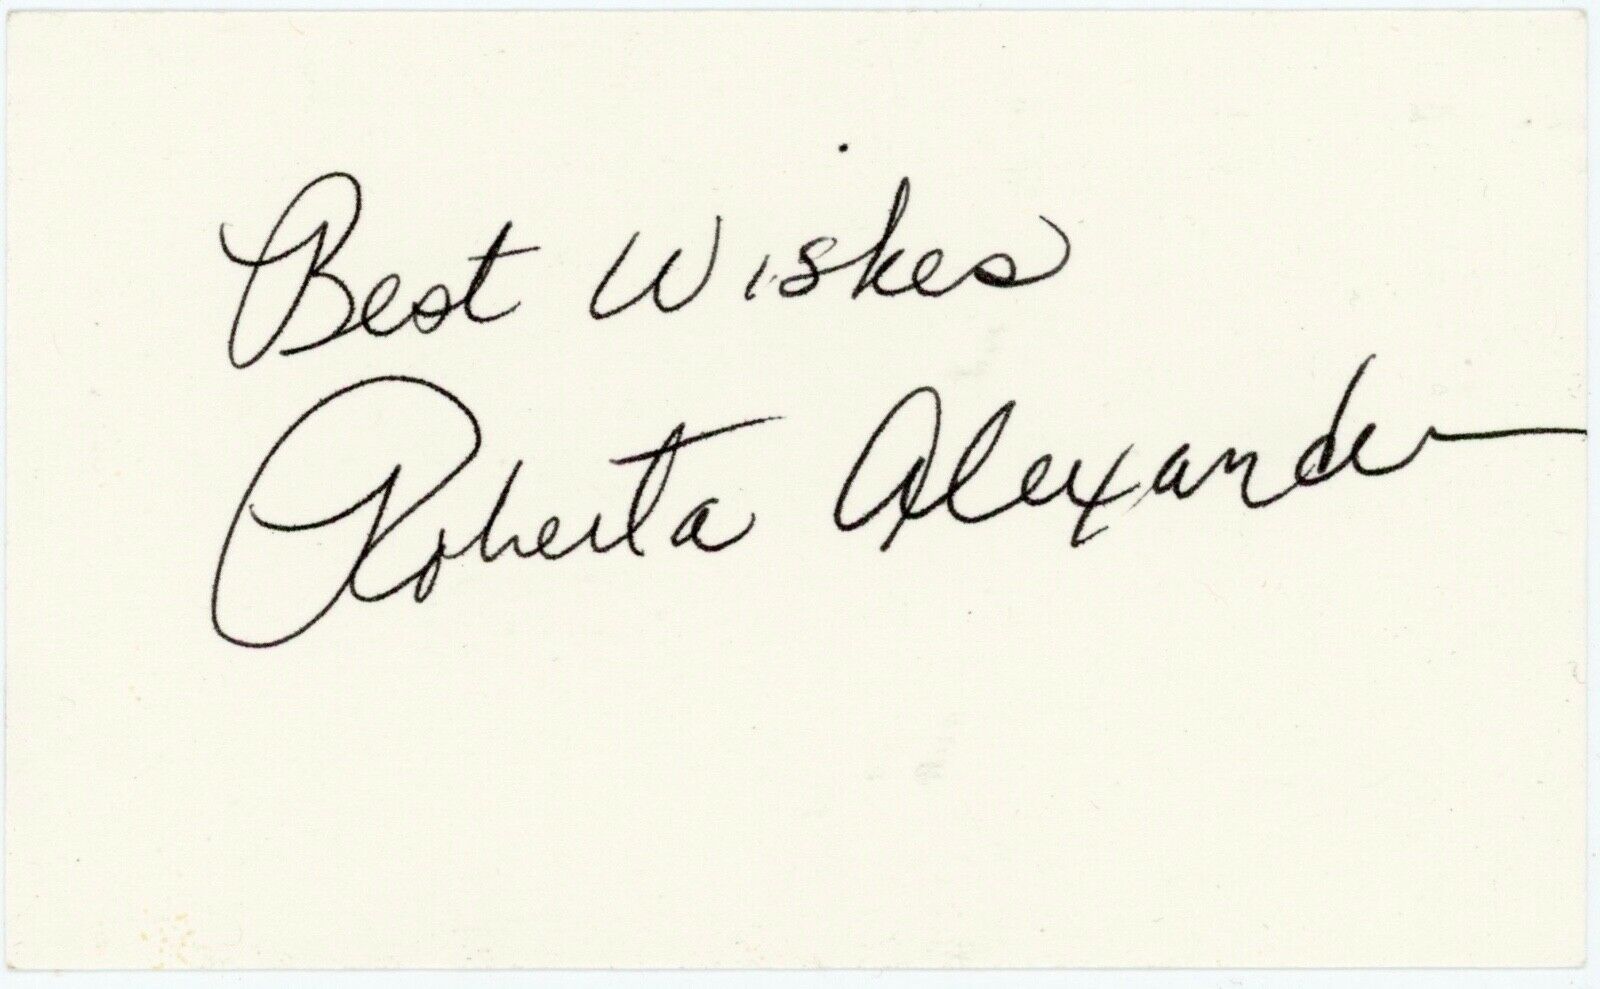 Best Wishes
Roberta Alexander